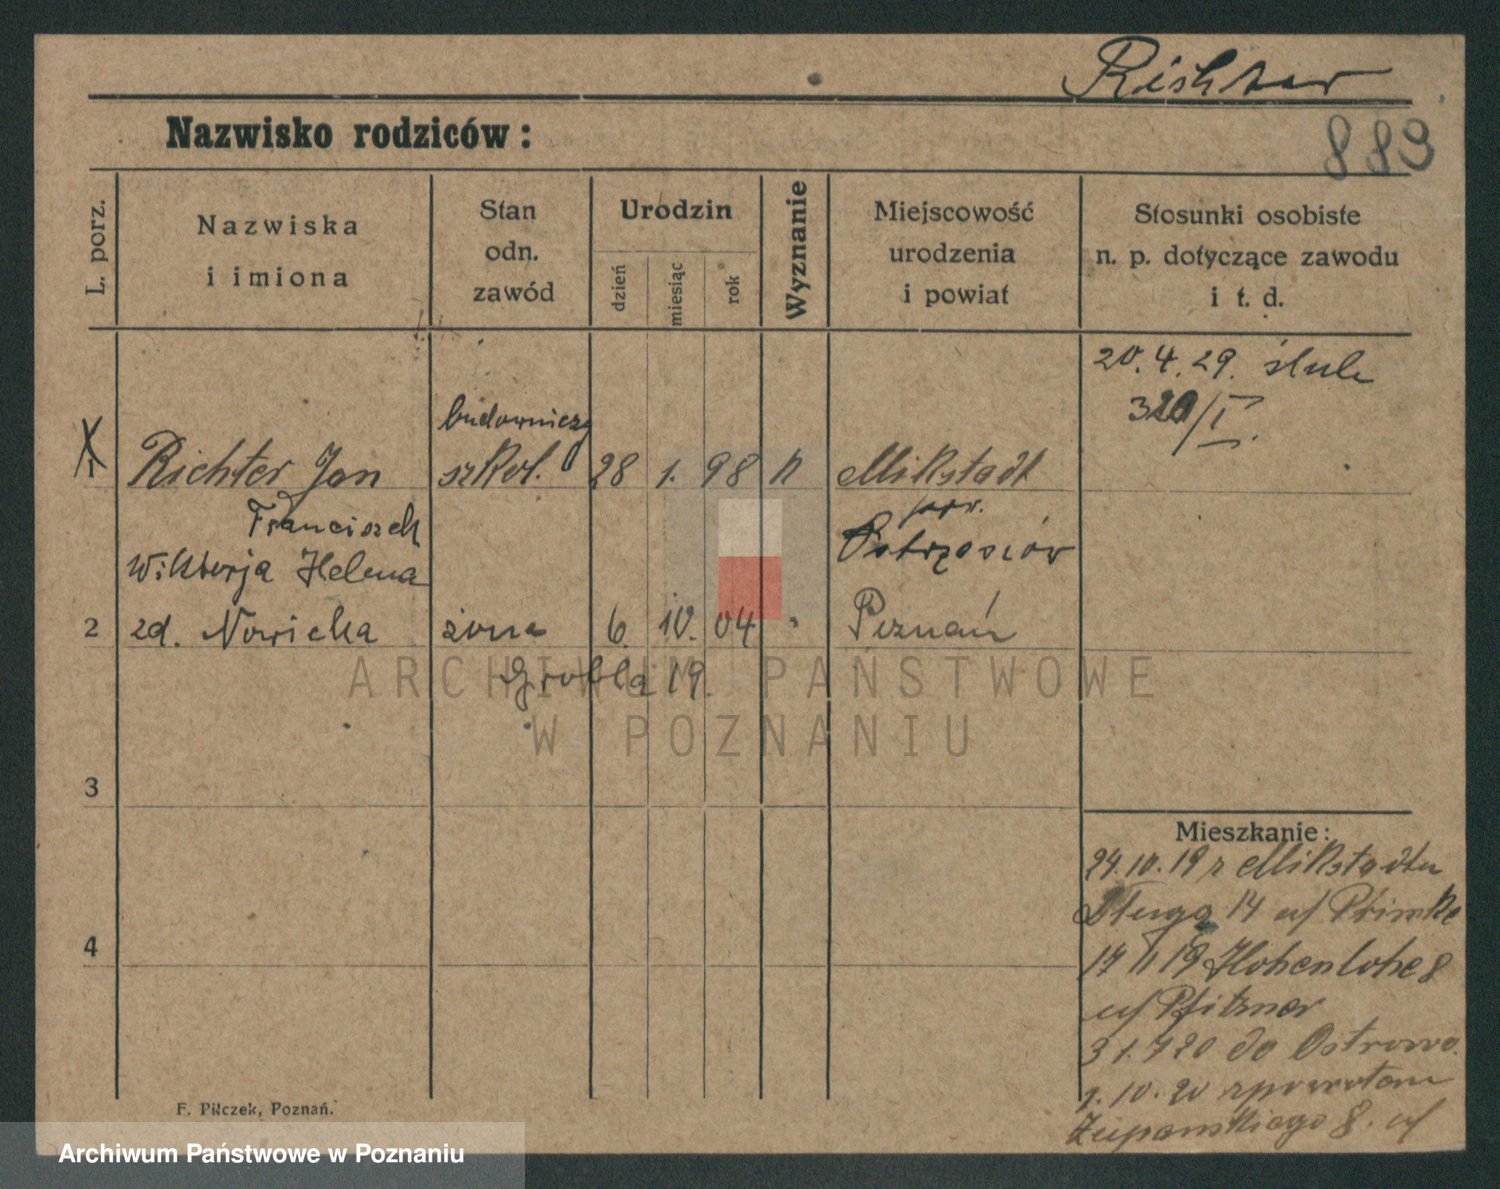 Richter
889
Nazwisko rodziców:
L. porz.
Nazwiska
i imiona
Stan
odn.
zawód
Urodzin
dzień
miesiąc
rok
Wyznanie
Miejscowość
urodzenia
i powiat
Stosunki osobiste
n. p. dotyczące zawodu
i t. d.
20.4.29. ślub
320/I.
budowniczy
1 Richter Jan szkol. 28 1. 98 k Mikstadt
Franciszek pow.
Ostrzeszów
Wiktorja Helena
2 zd. Nowicka żona 6. 10. 04 " Poznań
Grobla 19.
3
4
Mieszkanie:
24.10.19 z Mikstadtu
Długa 14 u/
17 11 19 Hohenlohe 8
u/ Pfitzner
31.7 20 do Ostrowa
1.10.20 zpowrotem
Żupańskiego 8. u/
F. Pilczek, Poznań.
ARCHIWUM PAŃSTWOWE
W POZNANIU
Archiwum Państwowe w Poznaniu